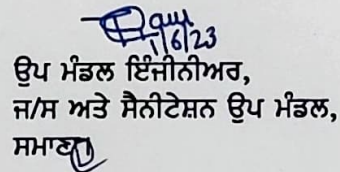 1/6/23
ਉਪ ਮੰਡਲ ਇੰਜੀਨੀਅਰ,
ਜ/ਸ ਅਤੇ ਸੈਨੀਟੇਸ਼ਨ ਉਪ ਮੰਡਲ,
ਸਮਾਣਾ